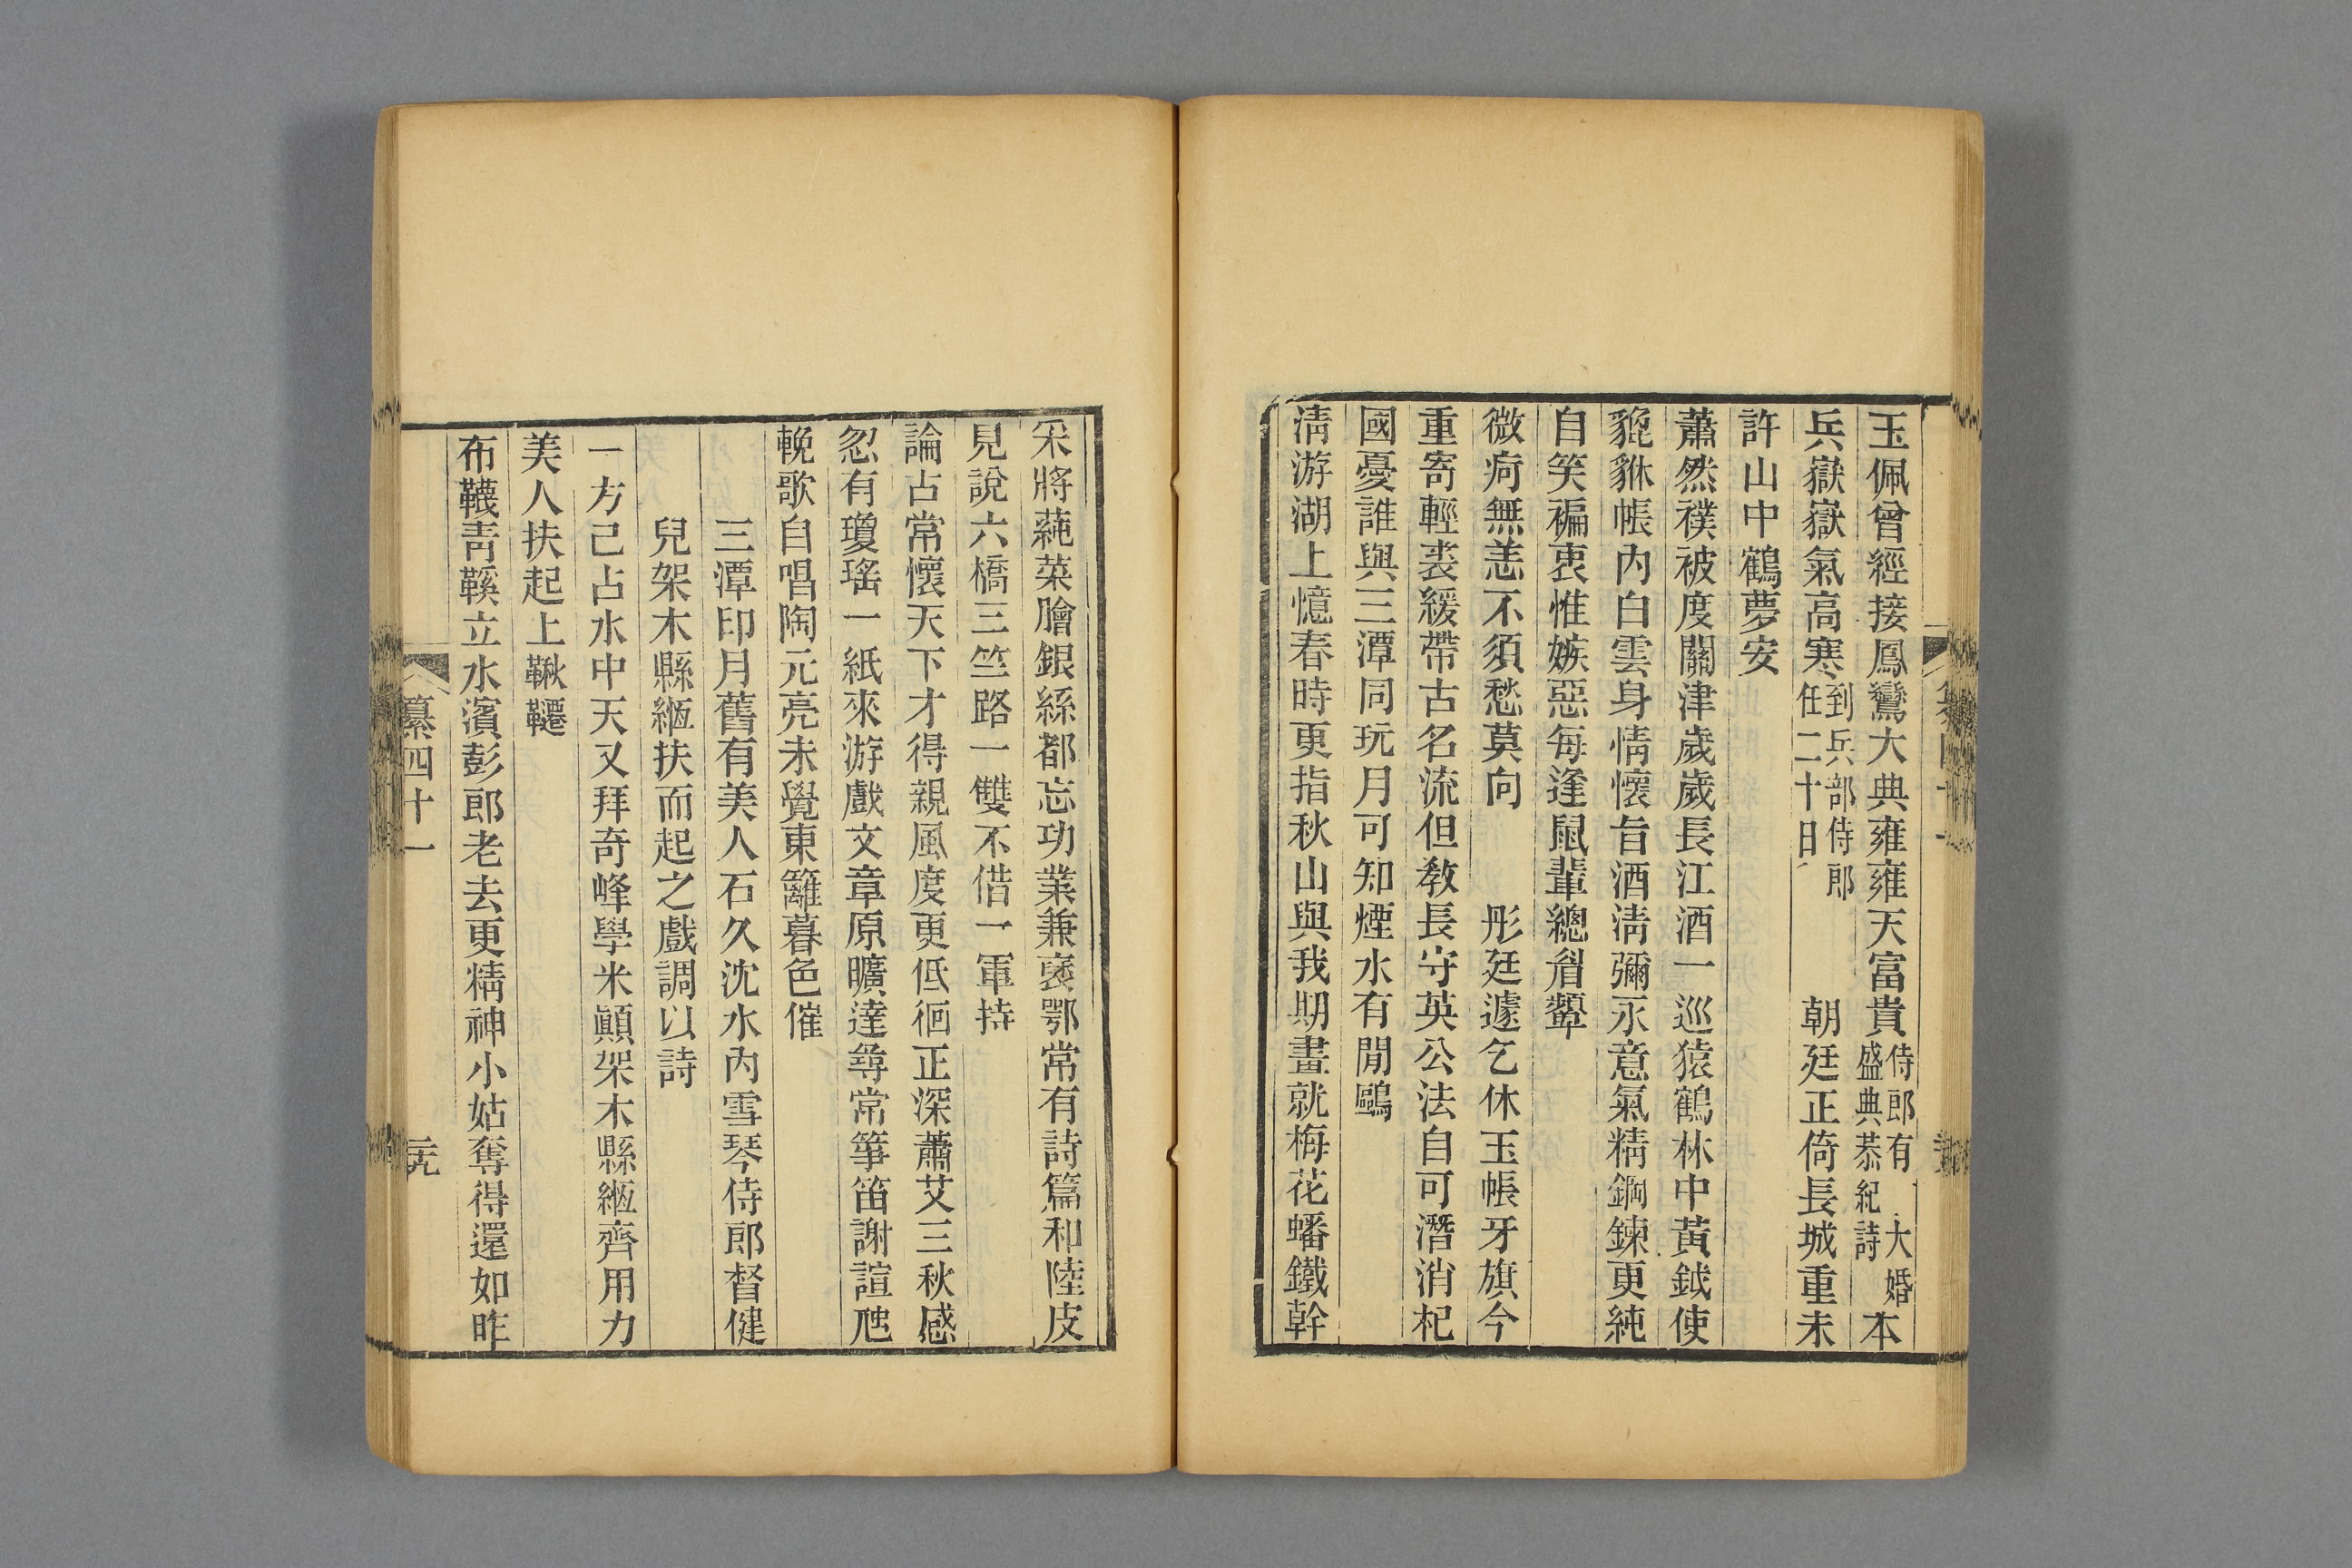 玉佩曾經接鳳鸞大典雍雍天富貴侍郎有大婚盛典恭紀詩本
兵嶽嶽氣高寒到兵部侍郎任二十日朝廷正倚長城重未
許山中鶴夢安
蕭然襆被度關津歲歲長江酒一巡猿鶴林中黃鉞使
貔貅帳內白雲身情懷旨酒淸彌永意氣精鋼鍊更純
自笑褊衷惟嫉惡每逢鼠輩總眉顰
微疴無恙不須愁莫向彤廷遽乞休玉帳牙旗今
重寄輕裘緩帶古名流但敎長守英公法自可潛消杞
國憂誰與三潭同玩月可知煙水有閒鷗
淸游湖上憶春時更指秋山與我期畫就梅花蟠鐵幹
采將蒓菜膾銀絲都忘功業兼褒鄂常有詩篇和陸皮
見說六橋三竺路一雙不借一軍持
論占常懷天下才得親風度更低徊正深蕭艾三秋感
忽有瓊瑤一紙來游戲文章原曠達尋常箏笛謝諠豗
輓歌自唱陶元亮未覺東籬暮色催
三潭印月舊有美人石久沈水內雪琴侍郎督健
兒架木縣緪扶而起之戲調以詩
一方己占水中天又拜奇峰學米顚架木縣緪齊用力
美人扶起上鞦韆
布韈靑鞵立水濱彭郎老去更精神小姑奪得還如昨
纂四十一